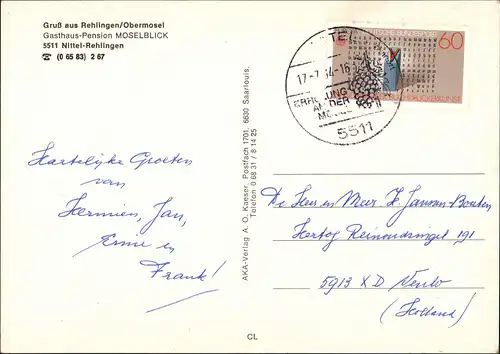 Gruß aus Rehlingen/Obermosel
Gasthaus-Pension MOSELBLICK
5511 Nittel-Rehlingen
☎ (0 65 83) 2 67
DEUTSCHE BUNDESPOST
60
17-7
ERHOLUNG
AN DER
MOSEL
5511
Hartelijke Groeten
van
Hermien, Jan,
Ermie en
Frank!
AKA-Verlag A. O. Kaeser, Postfach 1701, 6630 Saarlouis,
Telefon 0 68 31 / 8 14 25
De Heer en Mevr. H. Janssen-Bouten
Hertog Reinoudsingel 191
5913 XD Venlo
(Holland)
CL